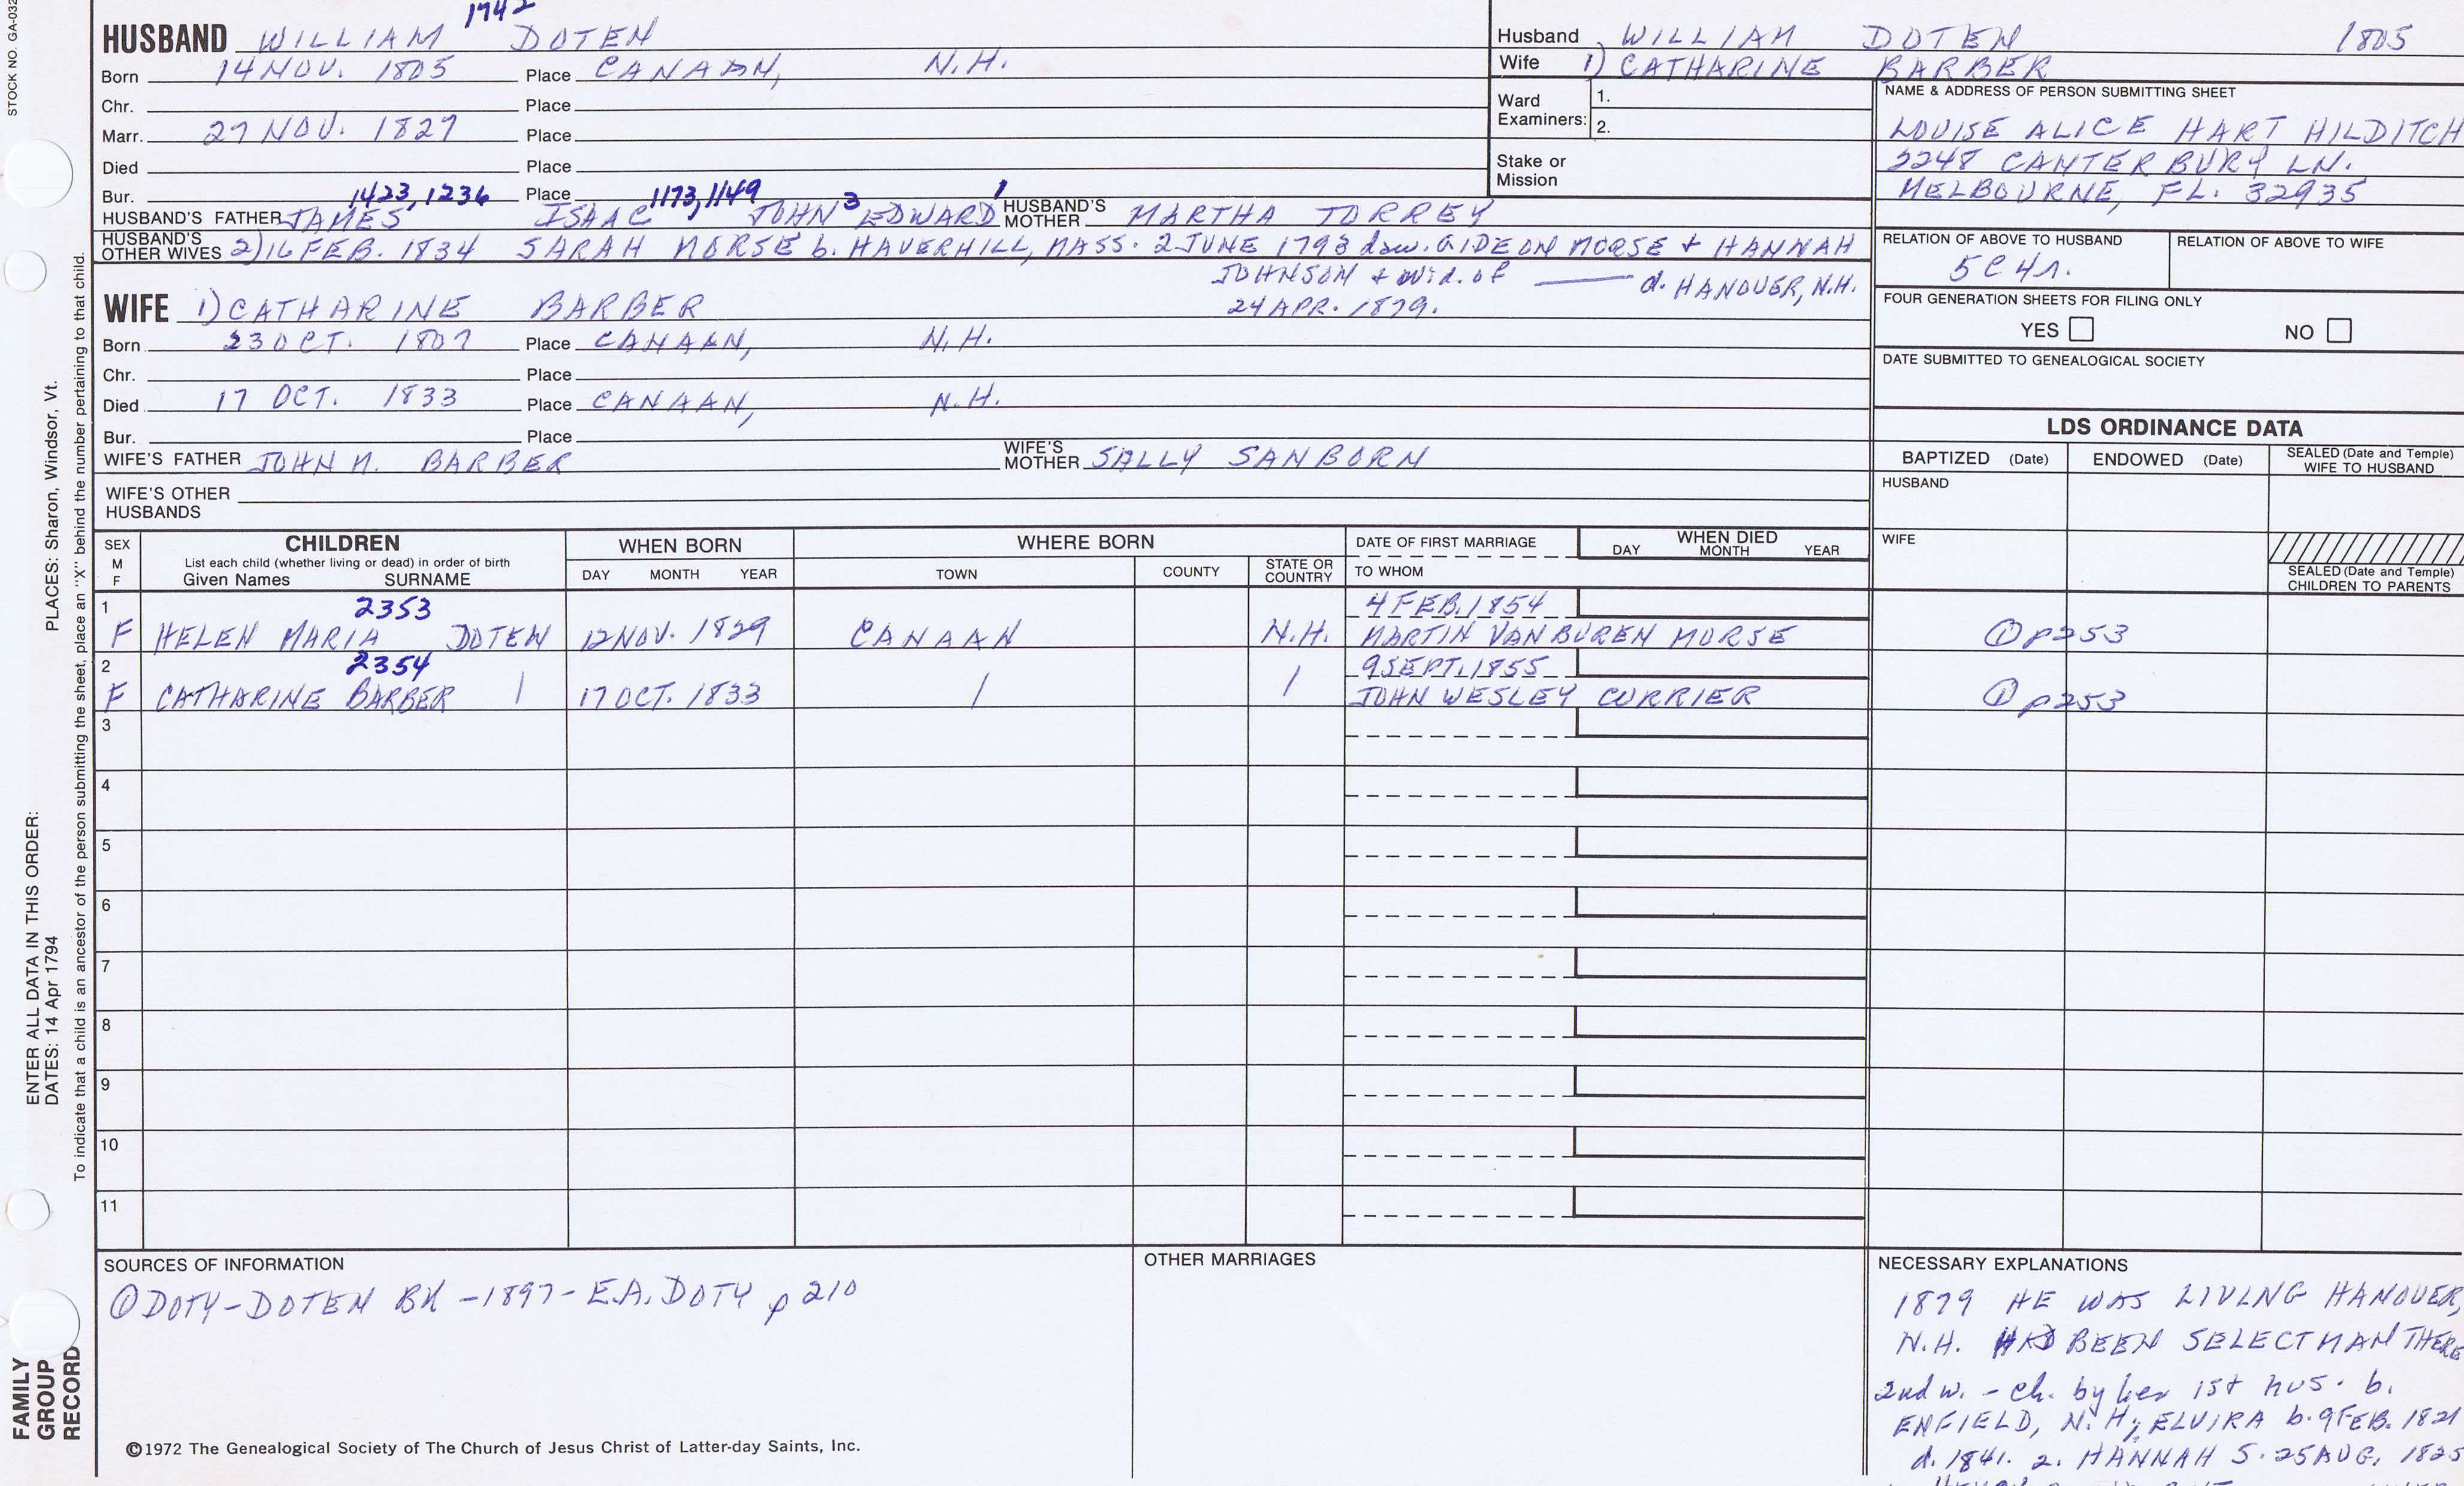 STOCK NO. GA-032
1742
HUSBAND WILLIAM DOTEN
Born 14 NOV. 1805 Place CANAAN, N.H.
Chr. Place
Marr. 27 NOV. 1827 Place
Died Place
Bur. 1423, 1236 Place 1173, 1149 3 1
HUSBAND'S FATHER JAMES ISAAC JOHN EDWARD HUSBAND'S MOTHER MARTHA TORREY
HUSBAND'S OTHER WIVES 2) 16 FEB. 1834 SARAH MORSE b. HAVERHILL, MASS. 2 JUNE 1793 daw. GIDEON MORSE + HANNAH
JOHNSON + wid. of —— d. HANOVER, N.H.
24 APR. 1879.
WIFE 1) CATHARINE BARBER
Born 23 OCT. 1807 Place CANAAN, N.H.
Chr. Place
Died 17 OCT. 1833 Place CANAAN, N.H.
Bur. Place
WIFE'S FATHER JOHN M. BARBER WIFE'S MOTHER SALLY SANBORN
WIFE'S OTHER HUSBANDS
Husband WILLIAM DOTEN 1805
Wife 1) CATHARINE BARBER
Ward Examiners: 1.
2.
Stake or Mission
NAME & ADDRESS OF PERSON SUBMITTING SHEET
LOUISE ALICE HART HILDITCH
2248 CANTERBURY LN.
MELBOURNE, FL. 32935
RELATION OF ABOVE TO HUSBAND RELATION OF ABOVE TO WIFE
5C4r.
FOUR GENERATION SHEETS FOR FILING ONLY
YES NO
DATE SUBMITTED TO GENEALOGICAL SOCIETY
LDS ORDINANCE DATA
BAPTIZED (Date) ENDOWED (Date) SEALED (Date and Temple) WIFE TO HUSBAND
HUSBAND
WIFE
SEALED (Date and Temple) CHILDREN TO PARENTS
SEX M F CHILDREN WHEN BORN WHERE BORN DATE OF FIRST MARRIAGE WHEN DIED
List each child (whether living or dead) in order of birth
Given Names SURNAME DAY MONTH YEAR TOWN COUNTY STATE OR COUNTRY TO WHOM DAY MONTH YEAR
1 2353 4 FEB. 1854
F HELEN MARIA DOTEN 12 NOV. 1829 CANAAN N.H. MARTIN VAN BUREN MORSE ① p253
2 2354 9 SEPT. 1855
F CATHARINE BARBER | 17 OCT. 1833 / / JOHN WESLEY CURRIER ① p253
3
4
5
6
7
8
9
10
11
SOURCES OF INFORMATION
① DOTY-DOTEN BK - 1897 - E.A. DOTY p 210
©1972 The Genealogical Society of The Church of Jesus Christ of Latter-day Saints, Inc.
OTHER MARRIAGES
NECESSARY EXPLANATIONS
1879 HE WAS LIVING HANOVER,
N.H. HAD BEEN SELECTMAN THERE
2nd w. - ch. by her 1st hus. b.
ENFIELD, N.H; ELVIRA b. 9 FEB. 1821
d. 1841. 2. HANNAH S. 25 AUG, 1825
PLACES: Sharon, Windsor, Vt.
ENTER ALL DATA IN THIS ORDER:
DATES: 14 Apr 1794
To indicate that a child is an ancestor of the person submitting the sheet, place an "X" behind the number pertaining to that child.
FAMILY
GROUP
RECORD